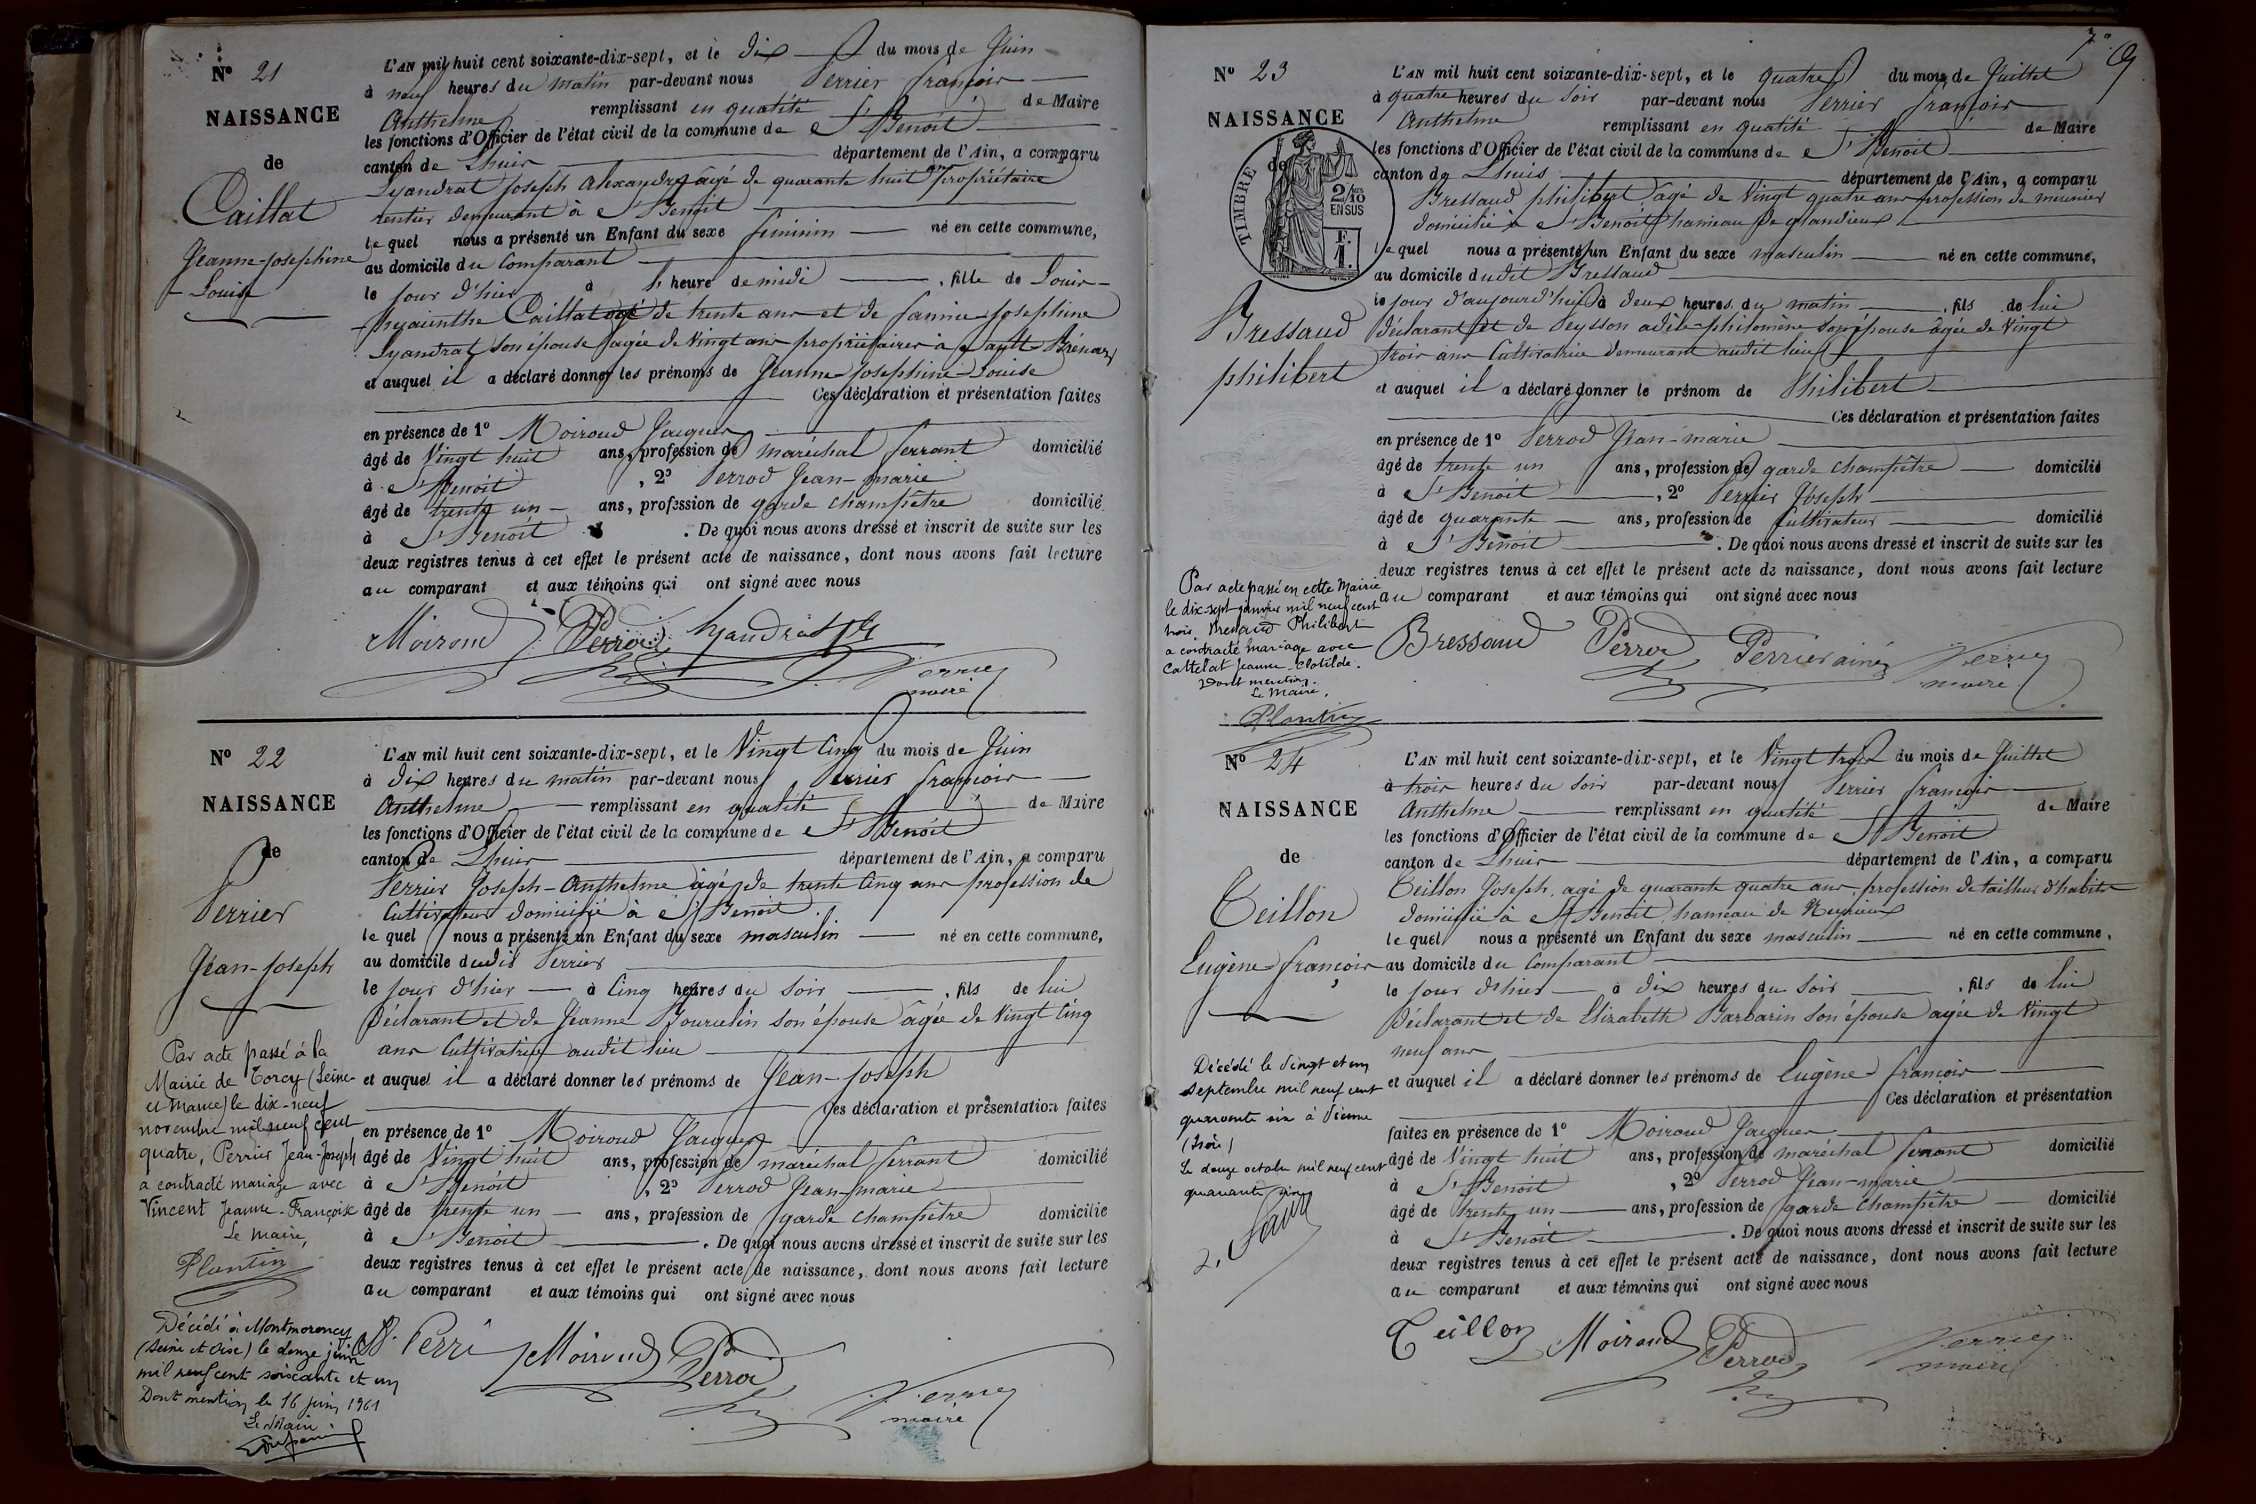 N° 21
NAISSANCE
de
Caillat
Jeanne-Joséphine
Louise
L'AN mil huit cent soixante-dix-sept, et le dix du mois de Juin
à neuf heures du matin par-devant nous Perrier françois
Anthelme remplissant en qualité de Maire
les fonctions d'Officier de l'état civil de la commune de St Benoit
canton de Lhuis département de l'Ain, a comparu
Lyandrat Joseph Alexandre agé de quarante huit ans propriétaire
rentier demeurant à St Benoit
le quel nous a présenté un Enfant du sexe féminin né en cette commune,
au domicile du Comparant
le jour d'hier à l' heure de midi , fille de Louis
hyacinthe Caillat agé de trente ans et de fannie Joséphine
Lyandrat son épouse agée de Vingt ans propriétaires à
et auquel il a déclaré donner les prénoms de Jeanne Joséphine Louise
Ces déclaration et présentation faites
en présence de 1° Moiroud Jacques
âgé de Vingt huit ans, profession de maréchal ferrant domicilié
à St Benoit , 2° Perrod Jean-marie
âgé de trente un ans, profession de garde champêtre domicilié
à St Benoit . De quoi nous avons dressé et inscrit de suite sur les
deux registres tenus à cet effet le présent acte de naissance, dont nous avons fait lecture
au comparant et aux témoins qui ont signé avec nous
Moiroud Perrod Lyandrat
Perrier
maire
N° 22
NAISSANCE
de
Perrier
Jean-Joseph
L'AN mil huit cent soixante-dix-sept, et le Vingt Cinq du mois de Juin
à dix heures du matin par-devant nous Perrier françois
Anthelme remplissant en qualité de Maire
les fonctions d'Officier de l'état civil de la commune de St Benoit
canton de Lhuis département de l'Ain, a comparu
Perrier Joseph-Anthelme agé de trente Cinq ans profession de
Cultivateur domicilié à St Benoit
le quel nous a présenté un Enfant du sexe masculin né en cette commune,
au domicile dudit Perrier
le jour d'hier à Cinq heures du soir , fils de lui
Déclarant et de Jeanne Bourcelin son épouse agée de Vingt Cinq
ans Cultivatrice audit lieu
et auquel il a déclaré donner les prénoms de Jean-Joseph
Ces déclaration et présentation faites
en présence de 1° Moiroud Jacques
âgé de Vingt huit ans, profession de maréchal ferrant domicilié
à St Benoit , 2° Perrod Jean-marie
âgé de trente un ans, profession de garde champêtre domicilié
à St Benoit . De quoi nous avons dressé et inscrit de suite sur les
deux registres tenus à cet effet le présent acte de naissance, dont nous avons fait lecture
au comparant et aux témoins qui ont signé avec nous
Moiroud Perrod
Perrier
maire
Par acte passé à la
Mairie de Torcy (Seine-
et Marne) le dix-neuf
novembre mil neuf cent
quatre, Perrier Jean-Joseph
a contracté mariage avec
Vincent Jeanne-Françoise
Le Maire,
Plantin
Décédé à Montmorency
(Seine et Oise) le douze juin
mil neuf cent soixante et un
Dont mention le 16 juin 1961
Le Maire
N° 23
NAISSANCE
de
TIMBRE
2/10
EN SUS
F.
1.
Bressaud
philibert
L'AN mil huit cent soixante-dix-sept, et le quatre du mois de Juillet
à quatre heures du soir par-devant nous Perrier françois
Anthelme remplissant en qualité de Maire
les fonctions d'Officier de l'état civil de la commune de St Benoit
canton de Lhuis département de l'Ain, a comparu
Bressaud philibert agé de Vingt quatre ans profession de meunier
domicilié à St Benoit hameau de glandieux
le quel nous a présenté un Enfant du sexe masculin né en cette commune,
au domicile dudit Bressaud
le jour d'aujourd'hui à deux heures du matin , fils de lui
Déclarant et de Peysson adèle-philomène son épouse âgée de Vingt
trois ans Cultivatrice demeurant audit lieu
et auquel il a déclaré donner le prénom de Philibert
Ces déclaration et présentation faites
en présence de 1° Perrod Jean-marie
âgé de trente un ans, profession de garde champêtre domicilié
à St Benoit , 2° Perrier Joseph
âgé de quarante ans, profession de Cultivateur domicilié
à St Benoit . De quoi nous avons dressé et inscrit de suite sur les
deux registres tenus à cet effet le présent acte de naissance, dont nous avons fait lecture
au comparant et aux témoins qui ont signé avec nous
Bressaud Perrod Perrier ainé Perrier
maire
Par acte passé en cette Mairie
le dix-sept janvier mil neuf cent
trois, Bressaud Philibert
a contracté mariage avec
Cattelat Jeanne-Clotilde.
Dont mention.
Le Maire,
Plantin
N° 24
NAISSANCE
de
Teillon
Eugène françois
L'AN mil huit cent soixante-dix-sept, et le Vingt trois du mois de Juillet
à trois heures du soir par-devant nous Perrier françois
Anthelme remplissant en qualité de Maire
les fonctions d'Officier de l'état civil de la commune de St Benoit
canton de Lhuis département de l'Ain, a comparu
Teillon Joseph, agé de quarante quatre ans profession de tailleur d'habits
domicilié à St Benoit hameau de
le quel nous a présenté un Enfant du sexe masculin né en cette commune,
au domicile du Comparant
le jour d'hier à dix heures du soir , fils de lui
Déclarant et de Elizabeth Barbarin son épouse agée de Vingt
neuf ans
et auquel il a déclaré donner les prénoms de Eugène françois
Ces déclaration et présentation
faites en présence de 1° Moiroud Jacques
âgé de Vingt huit ans, profession de maréchal ferrant domicilié
à St Benoit , 2° Perrod Jean-marie
âgé de trente un ans, profession de garde champêtre domicilié
à St Benoit . De quoi nous avons dressé et inscrit de suite sur les
deux registres tenus à cet effet le présent acte de naissance, dont nous avons fait lecture
au comparant et aux témoins qui ont signé avec nous
Teillon Moiroud Perrod Perrier
maire
Décédé le vingt et un
septembre mil neuf cent
quarante six à Vienne
(Isère)
Le douze octobre mil neuf cent
quarante six